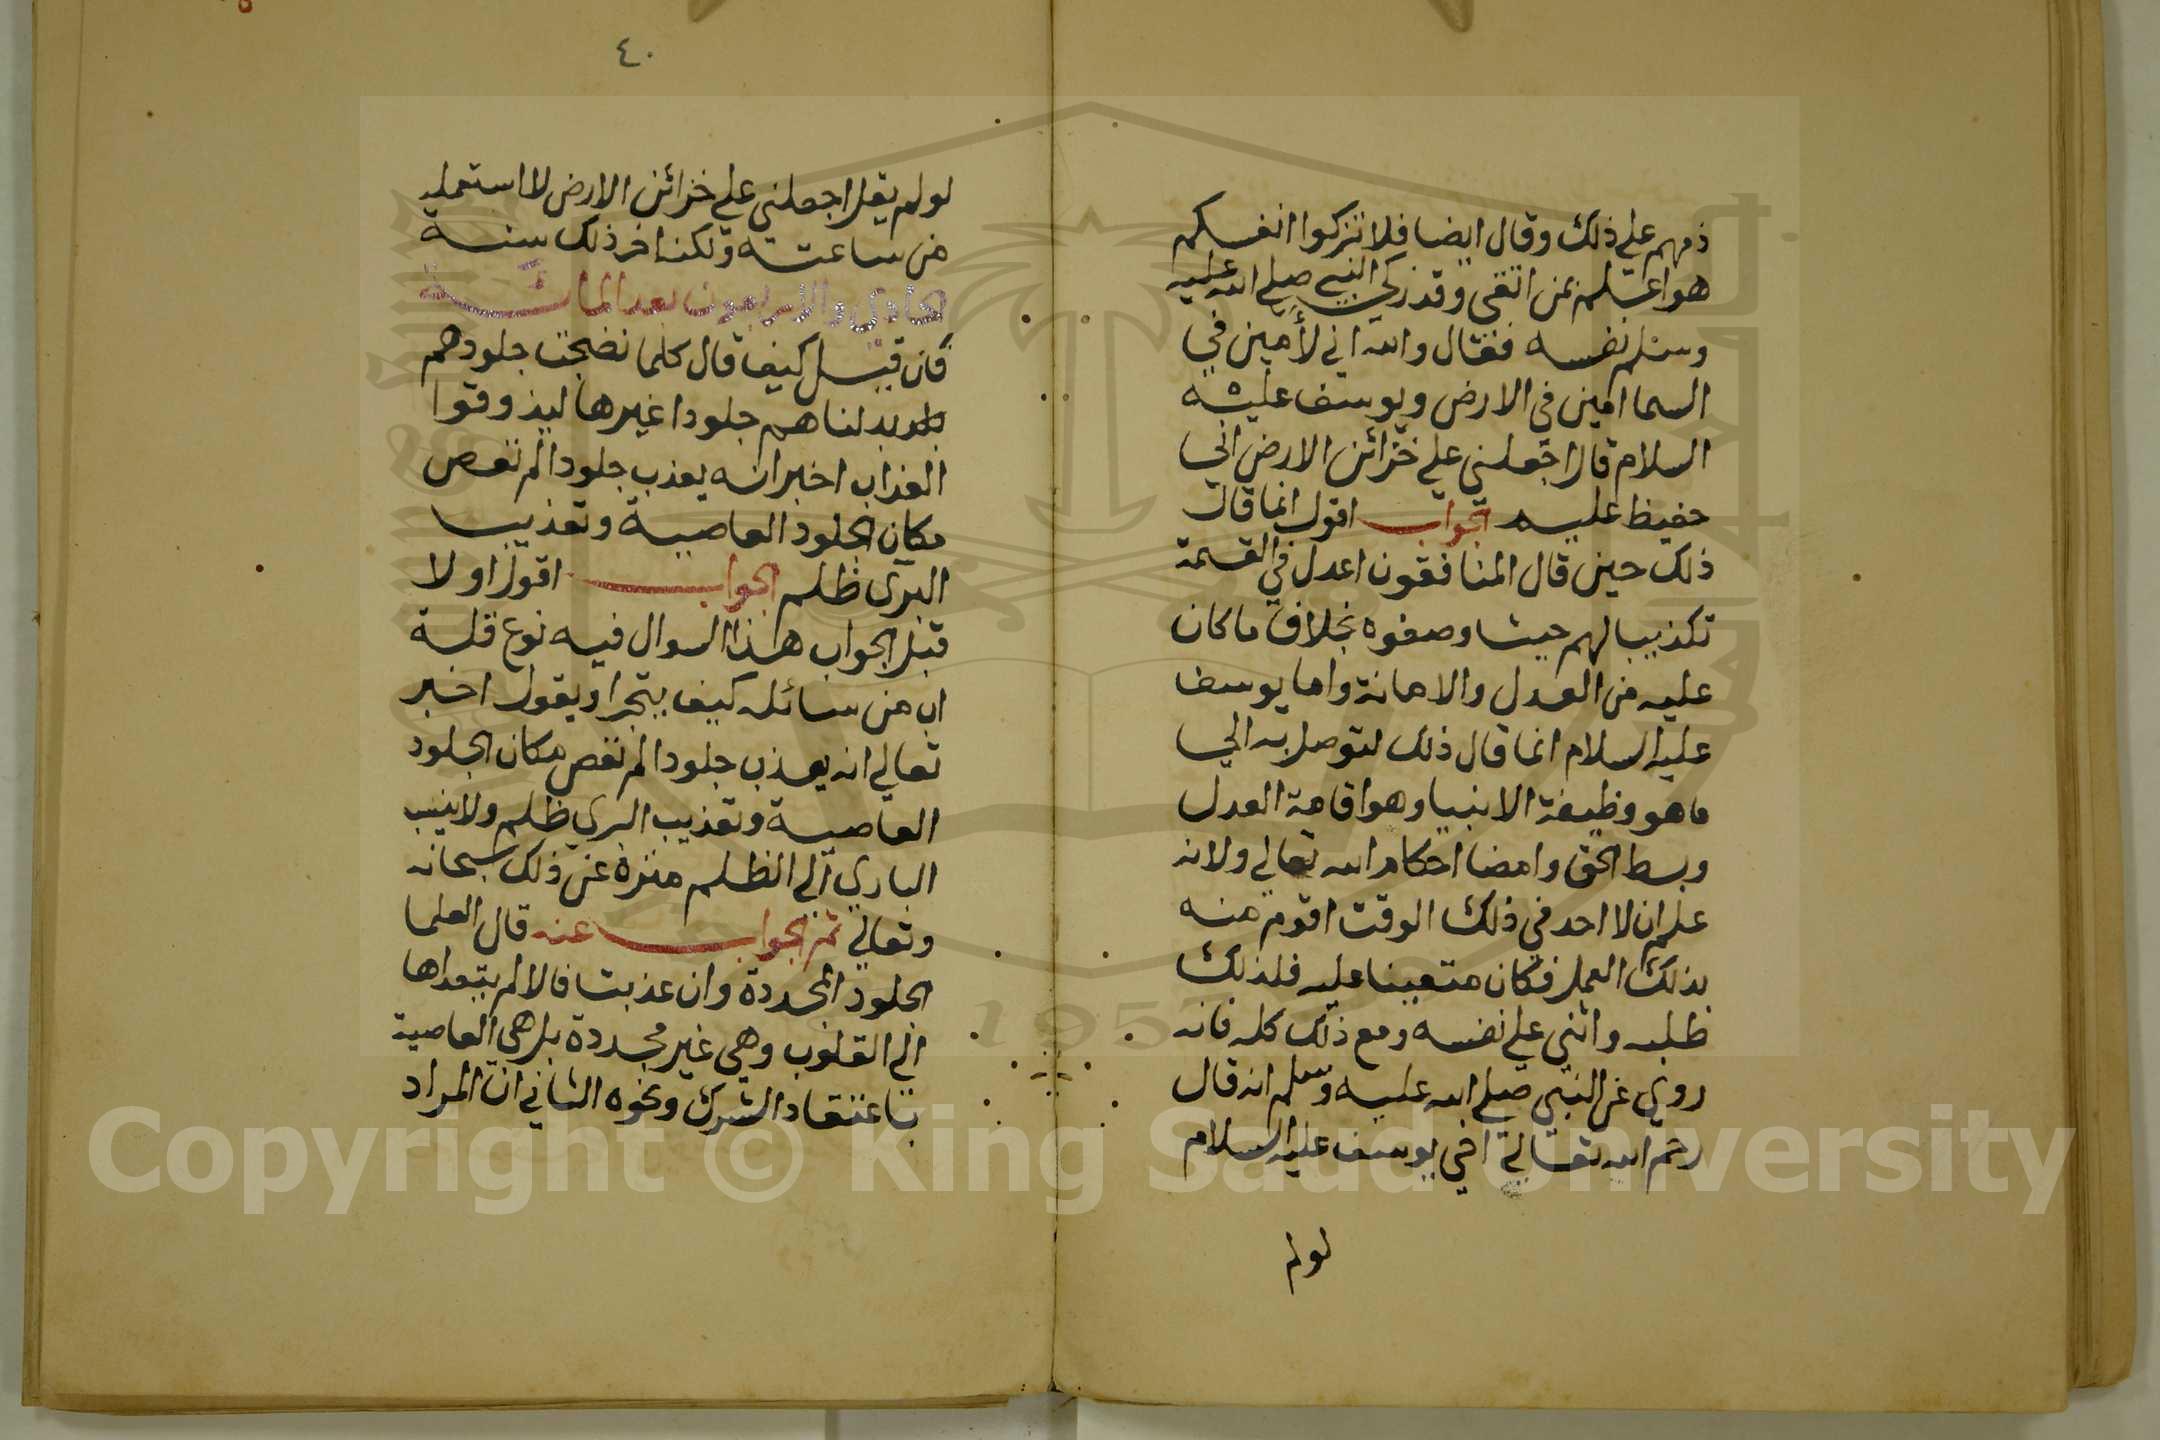 ذمهم علي ذلك وقال ايضا فلا تزكوا انفسكم
هو اعلم بمن اتقي وقد زكي النبي صلي الله عليه
وسلم نفسه فقال والله اني لأمين في
السما امين في الارض ويوسف عليه
السلام قال اجعلني علي خزائن الارض اني
حفيظ عليم الجواب اقول انما قال
ذلك حين قال المنافقون اعدل في القسمة
تكذيبا لهم حيث وصفوه بخلاف ما كان
عليه من العدل والامانة واما يوسف
عليه السلام انما قال ذلك لتوصل به الي
ما هو وظيفة الانبيا وهو اقامة العدل
وبسط الحق وامضا احكام الله تعالي ولانه
علم ان لا احد في ذلك الوقت اقوم منه
بذلك العمل فكان متعينا عليه فلذلك
طلبه واثني علي نفسه ومع ذلك كله فانه
روي عن النبي صلي الله عليه وسلم انه قال
رحم الله تعالي اخي يوسف عليه السلام
لولم
٤٠
لولم يقل اجعلني علي خزائن الارض لا استعمله
من ساعته ولكنه اخر ذلك سنة
الحادي والاربعون بعد المائة
فان قيل كيف قال كلما نضجت جلودهم
بدلناهم جلودا غيرها ليذوقوا
العذاب اخبر انه يعذب جلودا لم تعص
مكان الجلود العاصية وتعذيب
البري ظلم الجواب اقول اولا
قبل الجواب هذا السوال فيه نوع قلة
اب من سائله كيف يتجرا ويقول اخبر
تعالي انه يعذب جلودا لم تعص مكان الجلود
العاصية وتعذيب البري ظلم ولا ينسب
الباري الي الظلم منزه عن ذلك سبحانه
وتعالي ثم الجواب عنه قال العلما
الجلود المجددة وان عذبت فالالم يتعداها
الي القلوب وهي غير مجددة بل هي العاصية
باعتقاد الشرك ونحوه الثاني ان المراد
Copyright © King Saud University
1957